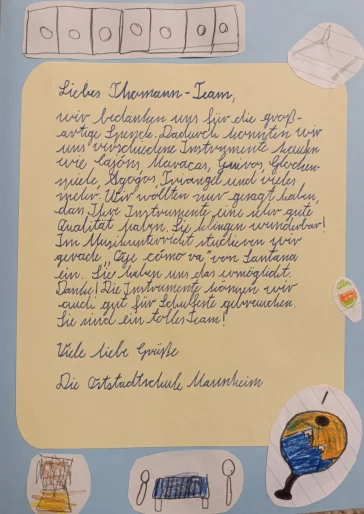 Liebes Thomann-Team,
wir bedanken uns für die groß-
artige Spende. Dadurch konnten wir
uns verschiedene Instrumente kaufen
wie Cajóns, Maracas, Guiros, Glocken-
spiele, Agogos, Triangel und vieles
mehr. Wir wollten nur gesagt haben,
dass Ihre Instrumente eine sehr gute
Qualität haben. Sie klingen wunderbar!
Im Musikunterricht studieren wir
gerade „Oye cómo va" von Santana
ein. Sie haben uns das ermöglicht.
Danke! Die Instrumente können wir
auch gut für Schulfeste gebrauchen.
Sie sind ein tolles Team!
Viele liebe Grüße
Die Oststadtschule Mannheim